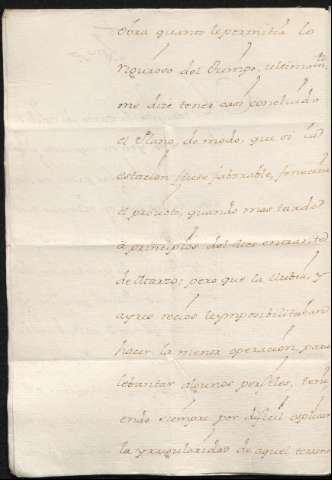 obra quanto le permitia lo
riguroso del tiempo, ultimam.te
me dize tener casi concluido
el Plano, de modo, que si la
estacion fuese faborable, feneceria
el proyecto, quando mas tarde
à principios del Mes entrante
de Marzo; pero que la llubia, y
ayres recios le ymposibilitaban
hacer la menor operacion, para
lebantar algunos perfiles, teni
endo siempre por dificil explicar
la yrregularidad de aquel terreno